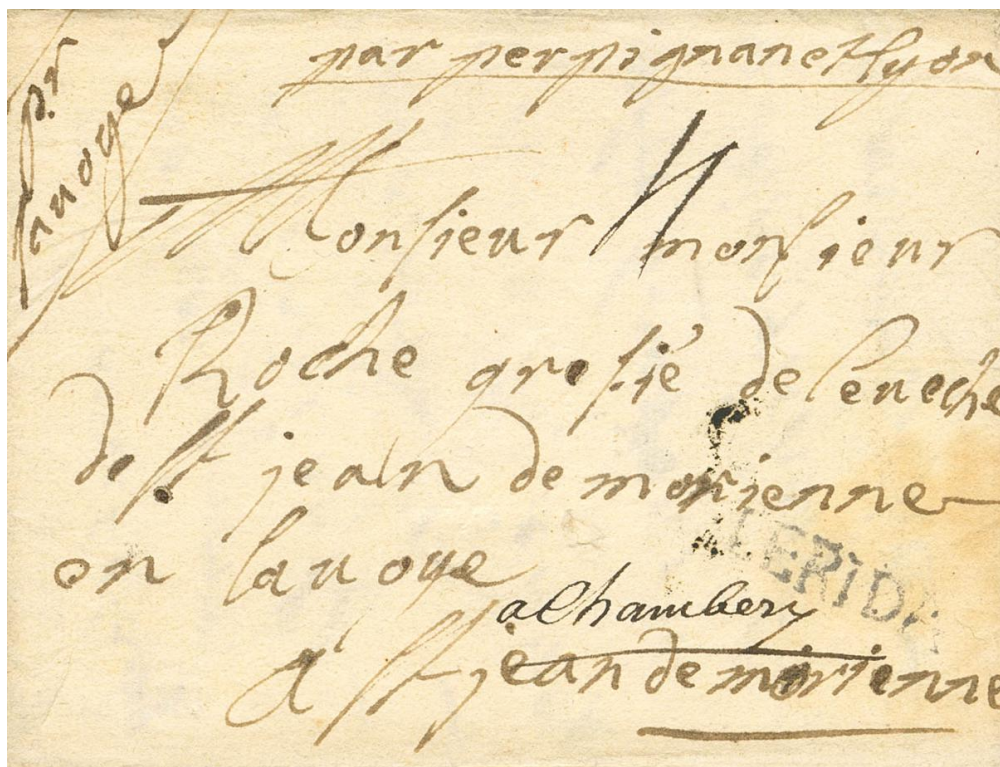 par perpignan et lyon
pr
savoye
Monsieur monsieur
Roche grefié de leveche
de st jean de morienne
en savoye
LERIDA
a Chambery
A st jean de morienne